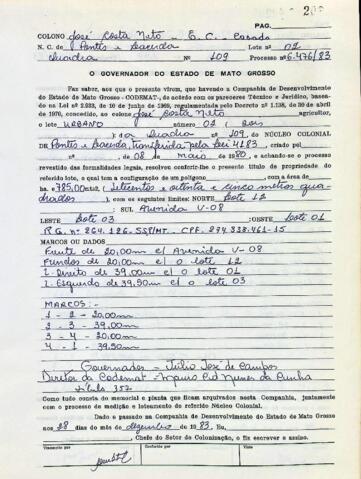 PAG.
COLONO José Costa Neto - E.C. - Casado
N. C. de Pontes e Lacerda Lote nº 02
Quadra Nº 109 Processo nº 6.476/83
O GOVERNADOR DO ESTADO DE MATO GROSSO
Faz saber, aos que o presente virem, que havendo a Companhia de Desenvolvimento
do Estado de Mato Grosso - CODEMAT-, de acordo com os pareceres Técnico e Jurídico, basea-
da na Lei nº 2.933, de 10 de junho de 1969, regulamentada pelo Decreto nº 1.138, de 30 de abril
de 1970, concedido, ao colono José Costa Neto agricultor,
o lote URBANO número 02 (dois
) na Quadra nº 109, DO NÚCLEO COLONIAL
de Pontes e Lacerda, transferida pela Lei 4183, criado pel
nº , de 08 de maio de 1980, e achando-se o processo
revestido das formalidades legais, resolveu conferir-lhe o presente título de propriedade do
referido lote, o qual tem a configuração de um polígono com a área de
ha. 785,00m2, (setecentos e oitenta e cinco metros qua-
drados), com os seguintes limites: NORTE Lote 12
: SUL Avenida V-08
LESTE Lote 03 :OESTE Lote 01
R.G. nº 264.126.SSP/MT. CPF. 294.338.461-15
MARCOS OU DADOS
Frente de 20,00m c/ Avenida V-08
Fundos de 20,00m c/ o lote 12
L. Direito de 39,00m c/ o lote 01
L. Esquerdo de 39,50m c/ o lote 03
MARCOS:
1 - 2 - 20,00m
2 - 3 - 39,00m
3 - 4 - 20,00m
4 - 1 - 39,50m
Governador - Júlio José de Campos
Diretor da Codemat - da Cunha
Título 352
Como tudo consta do memorial e planta que ficam arquivados nesta Companhia, juntamente
com o processo de medição e loteamento do referido Núcleo Colonial.
Dado e passado na Companhia de Desenvolvimento do Estado de Mato Grosso
aos 28 dias do mês de dezembro de 1983. Eu,
, Chefe do Setor de Colonização, o fiz escrever e assino.
Transcrito por Conferido por Visto